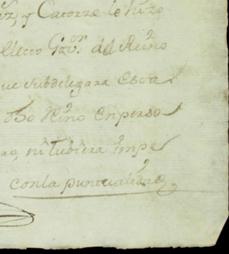 y Catorze le hizo
electo Gov.or del Reino
que subdelegara Esta
Dho Reino En perso
ni tubiera impe
con la puntualidad